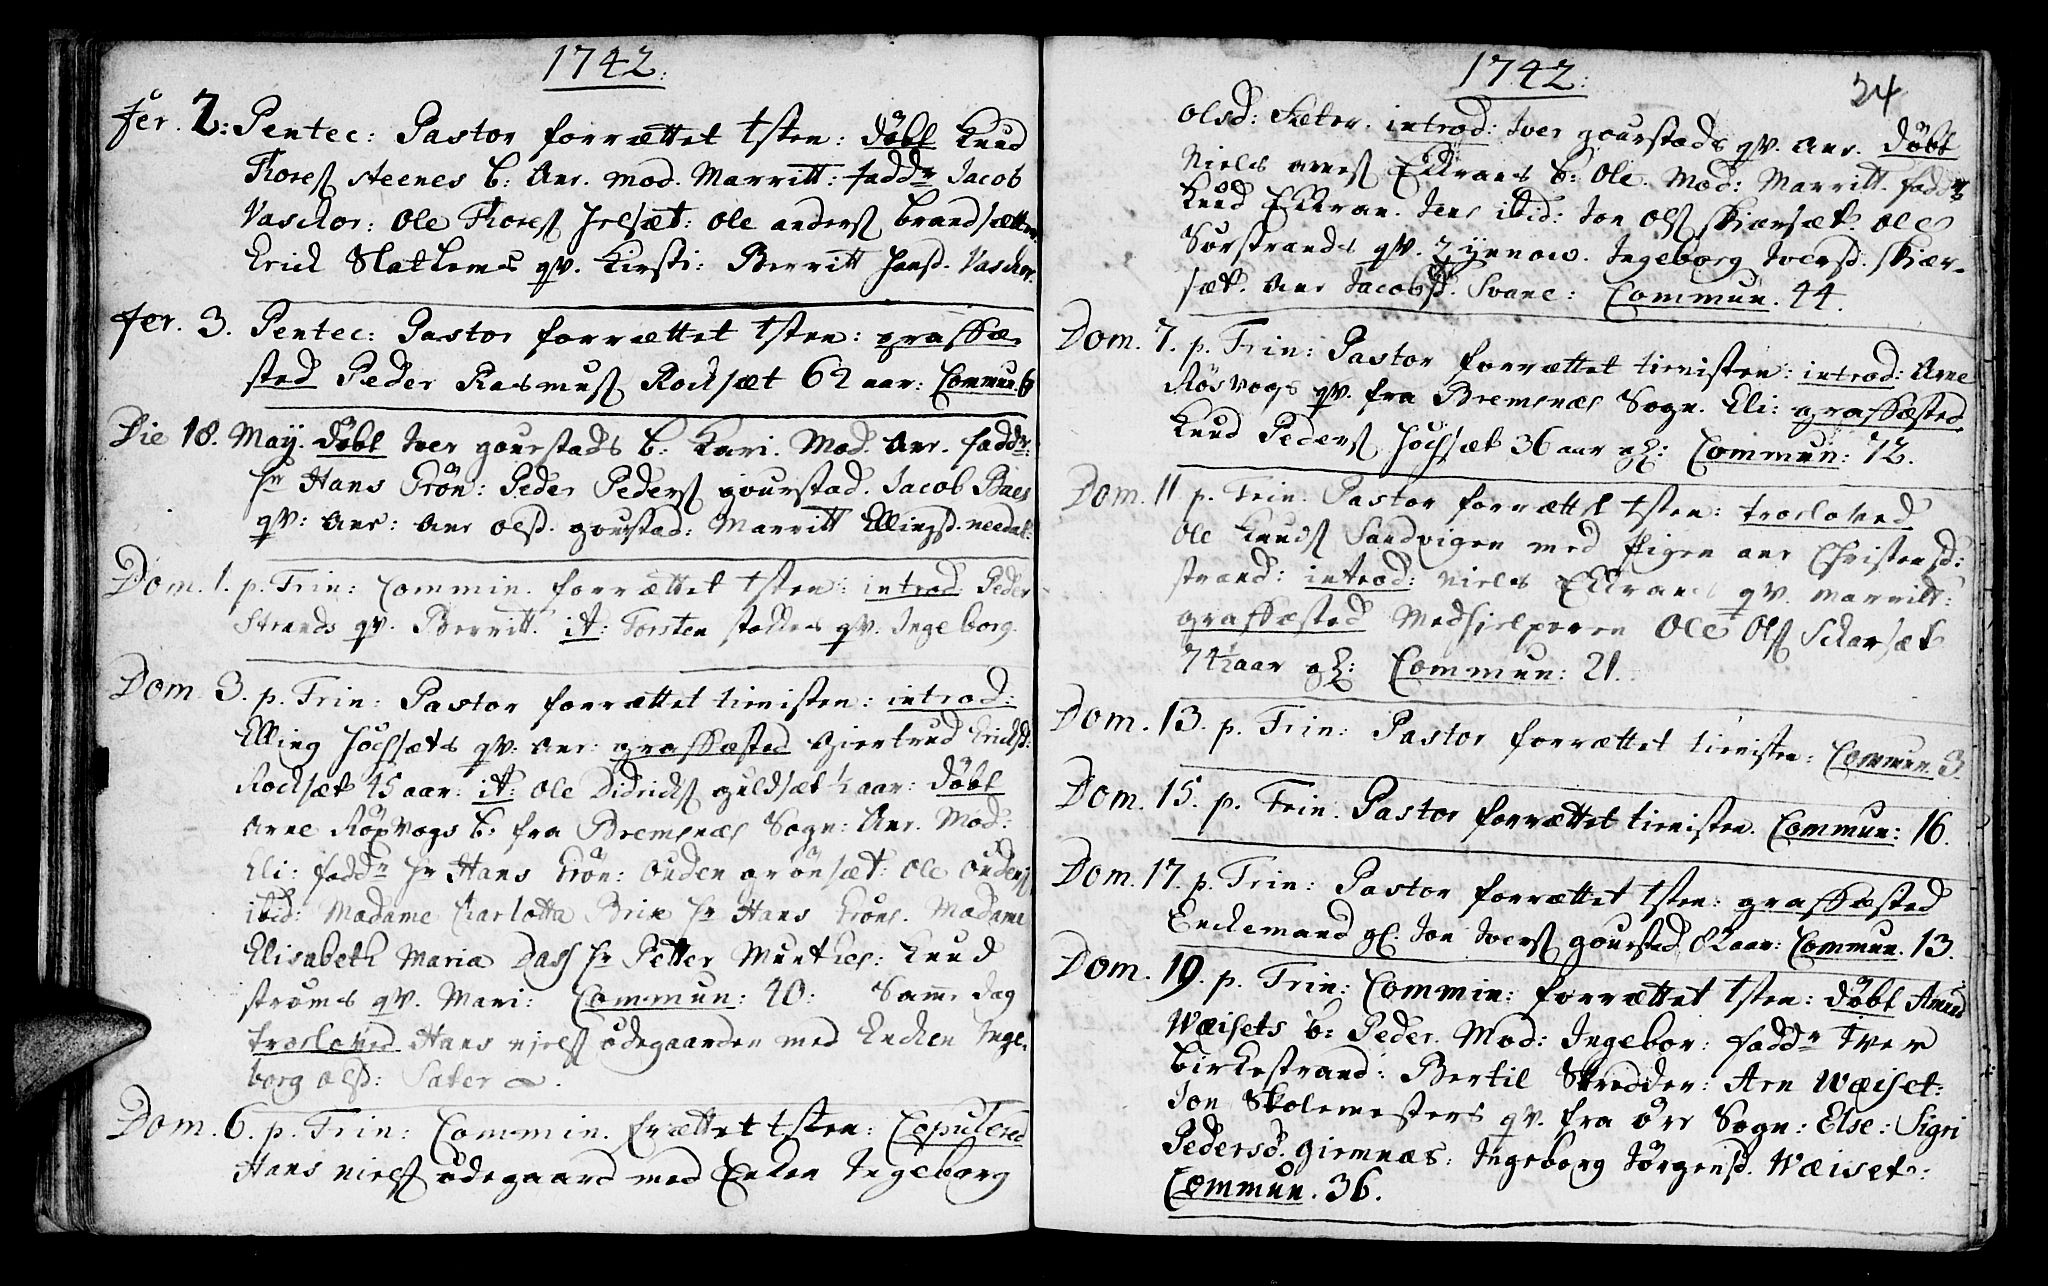 1742.
Fer. 2: Pentec: Pastor forrættet tsten: döbt Knud
Tores steenes b: Anr. mod. Marritt: faddr Jacob
Vaschor: Ole Tores Jrlsæt: Ole anders brandsætter
Erick Slathems qv. Kirsti: Berritt Hansd. Vaschor.
Fer. 3. Pentec: Pastor forrættet tsten: graffæ-
sted Peder Rasmus Rocksæt 62 aar: Commun: 6
Die 18. May. döbt Iver gourstads b. Kari. Mod. Anr. faddr:
Hr Hans Grön: Peder Peders gourstad. Jacob Baes
qv: Anr: Anr olsd. gourstad: Marritt Ellingsd. needal:
Dom. 1. p. Trin: Commin. forrættet tsten: introd: Peder
Strands qv. Berritt. it: Torsten stokkes qv. Ingeborg.
Dom. 3. p. Trin: Pastor forrættet tienisten: introd:
Elling Hochsæts qv: Anr: graffæsted Giertrud Ericksd:
Rocksæt 15 aar: it: Ole Didricks guldsæt ½ aar: döbt
Arne Rösvogs b: fra Bremsnæs Sogn: Anr. Mod:
Eli: faddr Hr Hans Grön: Ouden grönsæt: Ole Oudens
ibid: Madame Charlotta Brix Hr Hans Gröns. Madame
Elisabeth Maria Dass Hr Petter Munthes: Knud
ströms qv. Mari: Commun: 40: Samme dag
troelowed Hans niels ödegaarden med Encken Inge-
borg olsd: Sæter.
Dom. 6. p. Trin: Commin. frættet tsten: Copulered
Hans niels ödegaard med Enken Ingeborg
1742.
24
olsd: Sæter. introd: Iver gourstads qv. Anr. döbt
Niels arnes Ekkraas b: Ole. Mod: Marritt. faddr
Knud Ekkran. Jens ibid: Jon Ols skiærsæt. Ole
Sörstrands qv. Zynnow. Ingeborg Iversd. skiær-
sæt. Anr Jacobsd. Svane: Commun. 44.
Dom. 7. p. Trin: Pastor forrættet tienisten: introd: Arne
Rösvogs qv. fra Bremsnæs Sogn. Eli: graffæsted
Knud Peders Hochsæt 36 aar gl: Commun: 72.
Dom. 11 p. Trin: Pastor forrættet tsten: troelowed
Ole Knuds Sandvigen med Pigen anr Christensd:
strand: introd: Niels Ekkraas qv. Marritt:
graffæsted Medhielperen Ole Ols Skarsæt
74½ aar gl: Commun: 21.
Dom. 13. p. Trin: Pastor forrættet tienisten: Commun. 3.
Dom. 15. p. Trin. Pastor forrættet tienisten. Commun: 16.
Dom. 17. p. Trin: Pastor forrættet tsten: graffæsted
Enckemand gl. Jon Ivers gourstad 82 aar: Commun. 13.
Dom. 19. p. Trin: Commin: forrættet tsten: döbt Amund
Wæisets b: Peder. Mod: Ingebor: faddr Iver
Birkestrand: Bertil Skredder: Arn Wæiset:
Jon Skolemesters qv. fra öre Sogn: Else: Sigri
Pedersd. Giemnæs: Ingeborg Jörgensd. Wæiset:
Commun. 36.